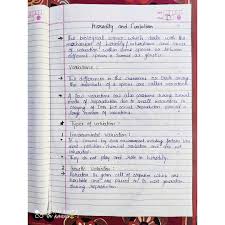 Heredity and Evolution
→ The biological science which deals with the
mechanism of heredity / inheritance and cause
of variation within dead species or between
different species is termed as genetics.
Variations :
→ The differences in the characters or traits among
the individuals of a species are called variations.
→ A few variations are also produced during asexual
mode of reproduction due to small inaccuracies in
copying of DNA but sexual reproduction causes a
large number of variations.
Types of variation :-
Environmental Variation :
→ It is caused by environmental factors like
radiation and
→ They do not play and role in heredity.
Genetic Variation :
→ Variation in germ cell of organism which are
heritable and are passed on to next generation
during reproduction.